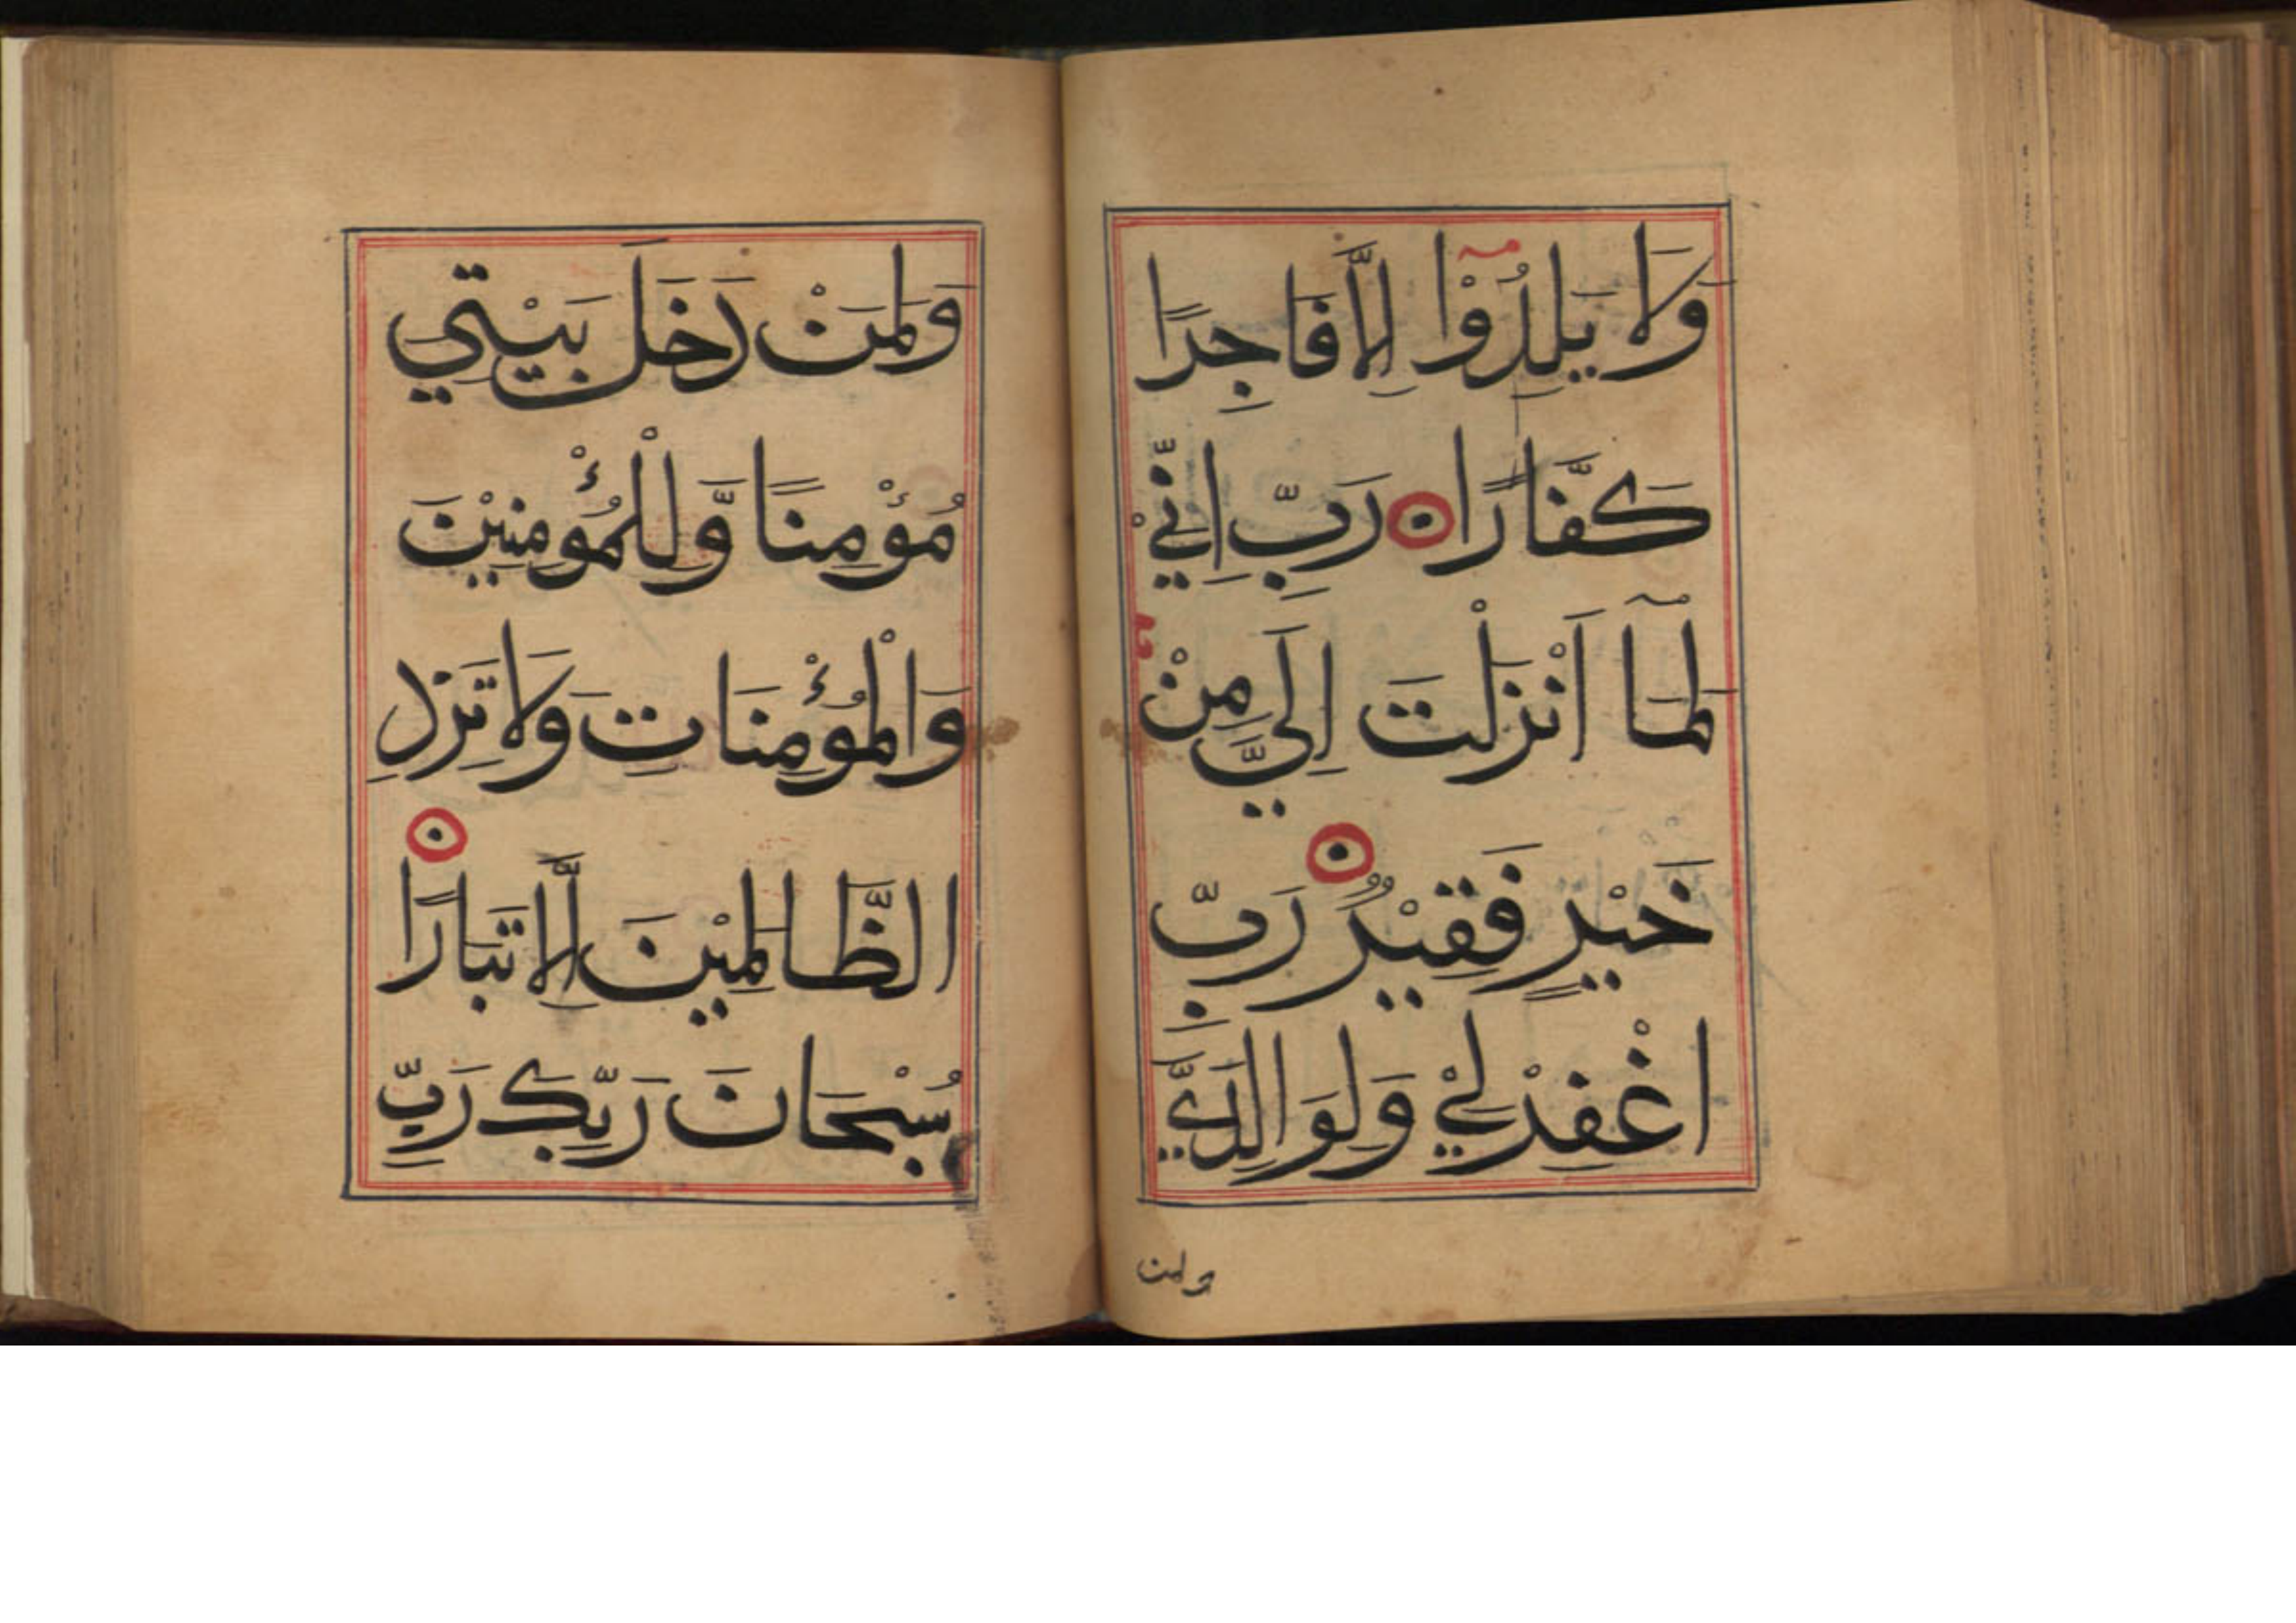 وَلَا يَلِدُوْٓا اِلَّا فَاجِرًا
كَفَّارًا رَبِّ اِنِّيْ
لِمَآ اَنْزَلْتَ اِلَيَّ مِنْ
خَيْرٍ فَقِيْرٌ رَبِّ
اغْفِرْ لِيْ وَلِوَالِدَيَّ
ولمن
وَلِمَنْ دَخَلَ بَيْتِي
مُؤْمِنًا وَّلِلْمُؤْمِنِيْنَ
وَالْمُؤْمِنَاتِ وَلَا تَزِدِ
الظَّالِمِيْنَ اِلَّا تَبَارًا
سُبْحَانَ رَبِّكَ رَبِّ